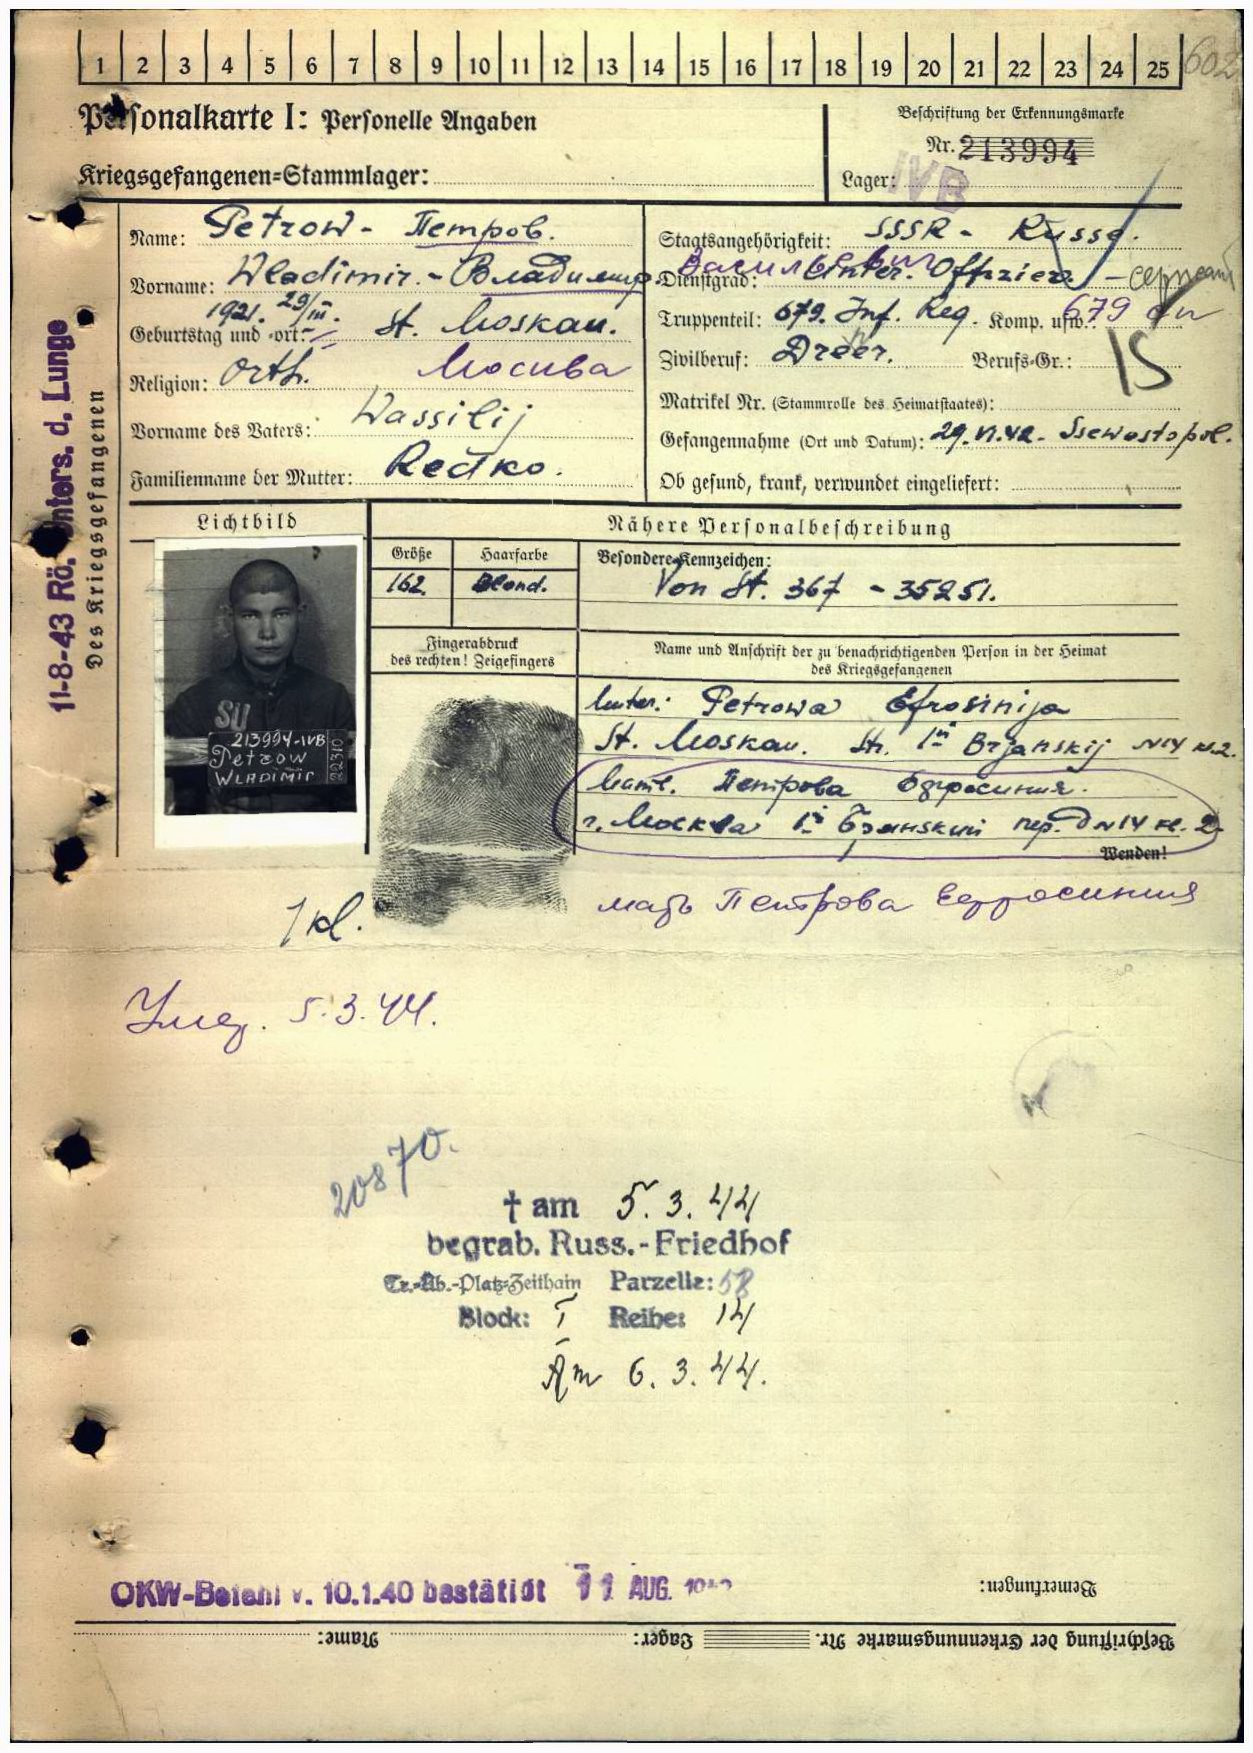 1 2 3 4 5 6 7 8 9 10 11 12 13 14 15 16 17 18 19 20 21 22 23 24 25 602
Personalkarte I: Personelle Angaben
Beschriftung der Erkennungsmarke
Nr. 213994
Kriegsgefangenen-Stammlager:
Lager: IVB
Name: Petrow - Петров.
Vorname: Wladimir. - Владимир Васильевич
Geburtstag und -ort: 1921. 29/III. St. Moskau.
Москва
Religion: Orth.
Vorname des Vaters: Wassilij
Familienname der Mutter: Redko.
Staatsangehörigkeit: SSSR - Russe.
Dienstgrad: Unter. Offizier. - сержант
Truppenteil: 679. Inf. Reg. Komp. usw.: 679
Zivilberuf: Dreer. Berufs-Gr.: 15
Matrikel Nr. (Stammrolle des Heimatstaates):
Gefangennahme (Ort und Datum): 29.VI.42 - Ssewostopol.
Ob gesund, krank, verwundet eingeliefert:
11-8-43 Rö. Unters. d. Lunge
Des Kriegsgefangenen
Lichtbild
Nähere Personalbeschreibung
Größe Haarfarbe Besondere Kennzeichen:
162. Blond. Von St. 367 - 35251.
Fingerabdruck
des rechten! Zeigefingers
Name und Anschrift der zu benachrichtigenden Person in der Heimat
des Kriegsgefangenen
SU
213994-IVB
Petrow
Wladimir
22310
Muter: Petrowa Efrosinija
St. Moskau. Str. 1ⁿ Brjanskij N14 к.2.
Мать. Петрова Ефросиния.
г. Москва 1й Брянский пер. д N14 кв. 2
Wenden!
мать Петрова Ефросиния
1 kl.
Умер. 5.3.44.
20870.
† am 5.3.44
begrab. Russ.-Friedhof
Tr.-Üb.-Platz-Zeithain Parzelle: 58
Block: I Reihe: 14
Am 6.3.44.
OKW-Befehl v. 10.1.40 bestätigt 11 AUG.
Bemerkungen:
Beschriftung der Erkennungsmarke Nr. Lager: Name: